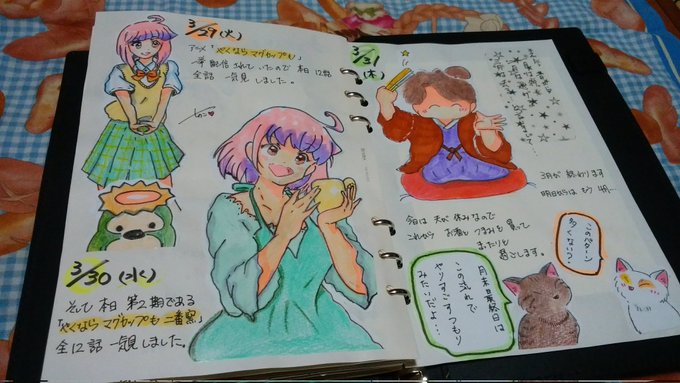 3/29(火)
アニメ「やくならマグカップも」
一挙配信されていたので 本日 12話
全話 一気見しました。
3/30(水)
そして 本日 第2期である
「やくならマグカップも 二番窯」
全12話 一気見しました。
3/31(木)
3月が終わります
明日からはもう4月…
今日は 夫が休みなので
これから お酒と つまみを 買って
まったりと
過ごします。
このパターン
多くない?
月末最終日は
この流れで
やりすごすつもり
みたいだよ…